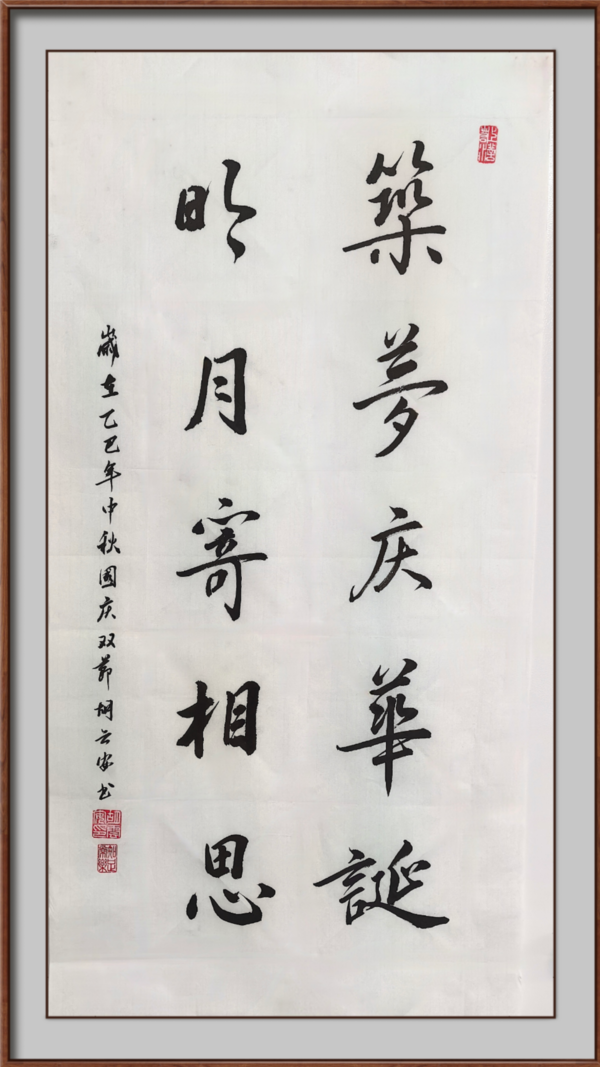 築夢庆華誕
明月寄相思
歲在乙巳年中秋國庆双節胡云安书